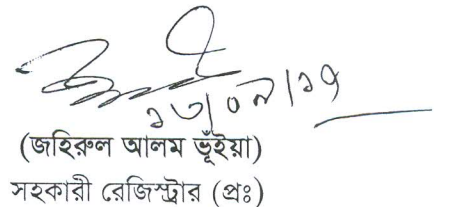 ১৩/০৯/১৭
(জহিরুল আলম ভূঁইয়া)
সহকারী রেজিস্ট্রার (প্রঃ)